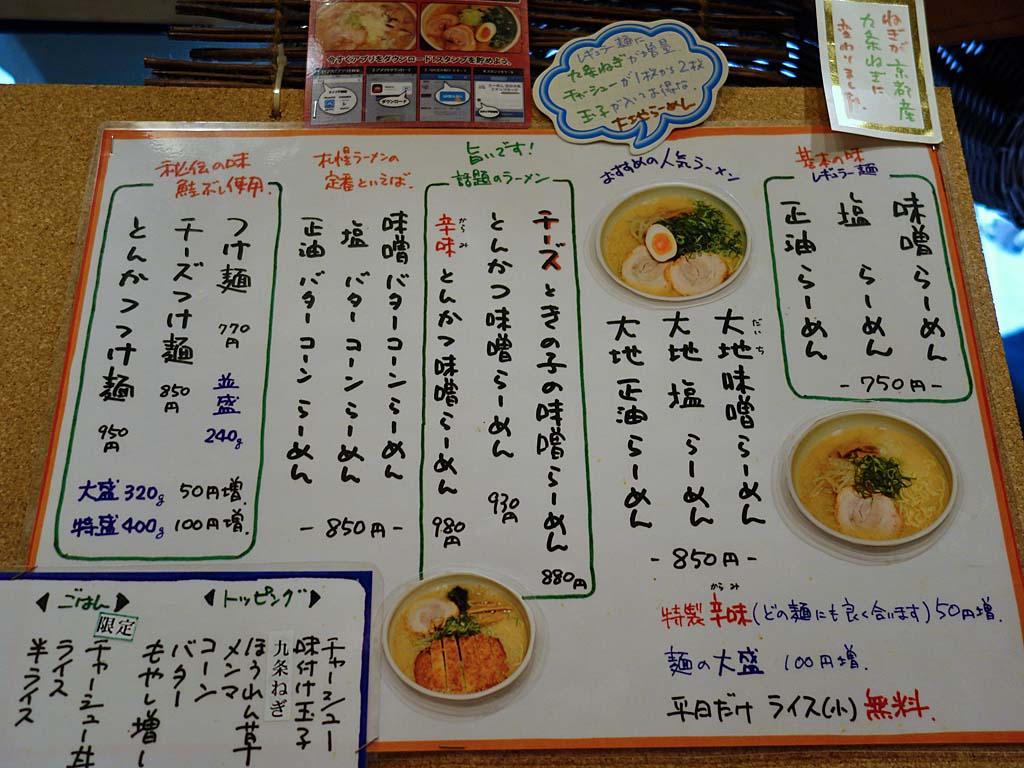 今すぐアプリをダウンロード!スタンプを貯めよう。
ダウンロード
レギュラー麺に
九条ねぎが増量
チャーシューが1枚から2枚
玉子が入ってお得な
大地らーめん
ねぎが京都産
九条ねぎに
変わりました。
基本の味
レギュラー麺
味噌らーめん
塩らーめん
正油らーめん
-750円-
おすすめの人気ラーメン
だいち
大地味噌らーめん
大地塩らーめん
大地正油らーめん
-850円-
特製辛味(どの麺にも良く合います)50円増.
からみ
麺の大盛 100円増.
平日だけ ライス(小)無料.
旨いです!
話題のラーメン
チーズときの子の味噌らーめん 880円
とんかつ味噌らーめん 930円
からみ
辛味とんかつ味噌らーめん 980円
札幌ラーメンの
定番といえば.
味噌バターコーンらーめん
塩バターコーンらーめん
正油バターコーンらーめん
-850円-
秘伝の味
鮭ぶし使用.
つけ麺 770円
チーズつけ麺 850円
とんかつつけ麺 950円
並盛240g
大盛320g 50円増.
特盛400g 100円増.
◀トッピング▶
チャーシュー
味付け玉子
九条ねぎ
ほうれん草
メンマ
コーン
バター
もやし増し
◀ごはん▶
限定
チャーシュー丼
ライス
半ライス